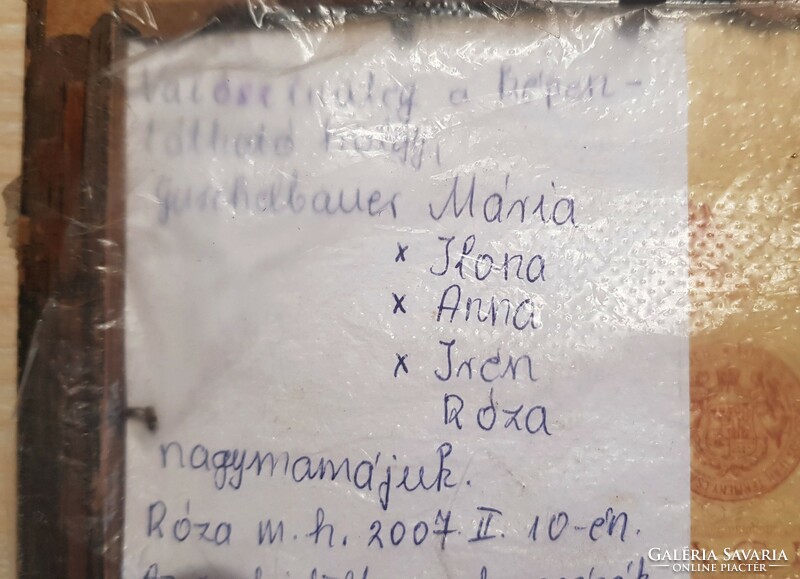 Valószínűleg a képen-
látható hölgy,
Guscheलbauer Mária
x Ilona
x Anna
x Irén
Róza
nagymamájuk.
Róza m.h. 2007. II. 10-én.
GALÉRIA SAVARIA
ONLINE PIACTÉR